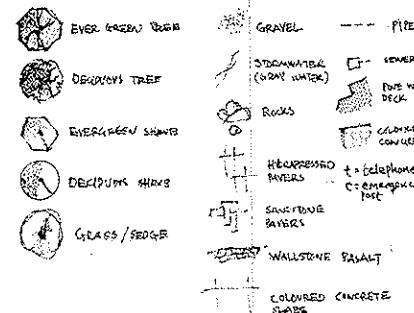 EVER GREEN TREE
DECIDUOUS TREE
EVERGREEN SHRUB
DECIDUOUS SHRUB
GRASS/SEDGE
GRAVEL
STORMWATER
(GRAY WATER)
ROCKS
PAVERS
SANDSTONE
PAVERS
WALLSTONE BASALT
COLOURED CONCRETE
SLABS
PIPE
SEWER
DECK
t = telephone
post